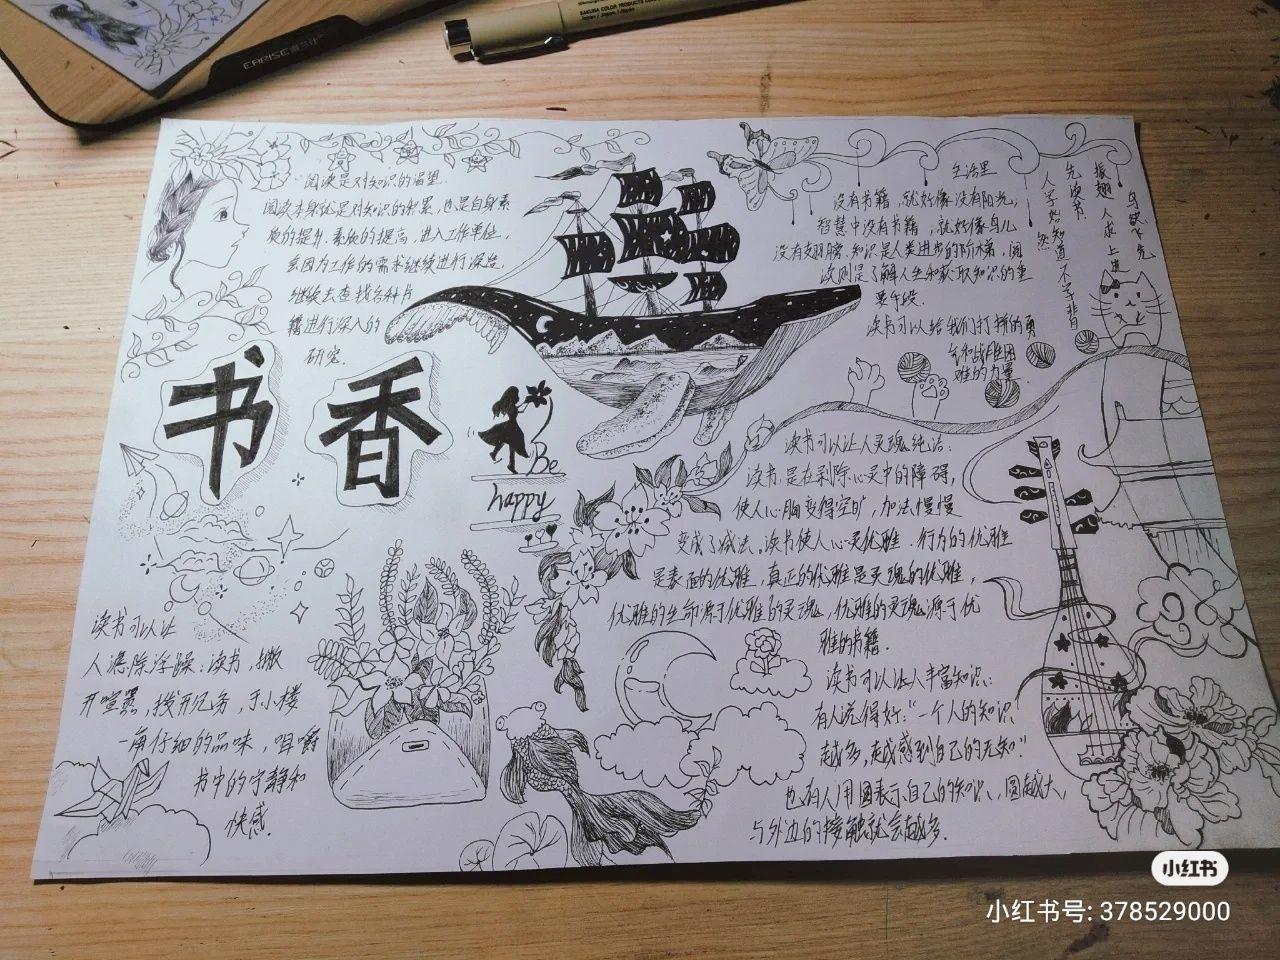 阅读是对知识的渴望.
阅读本身就是对知识的积累,也是自身素
质的提升、素质的提高,进入工作单位,
会因为工作的需求继续进行深造.
继续去查找各种片
籍进行深入的
研究.
书香
Be
happy
生活里
没有书籍,就好像没有阳光,
智慧中没有书籍,就好像鸟儿
没有翅膀.知识是人类进步的阶梯,阅
读则是了解人生和获取知识的重
要手段.
读书可以给我们打拼的勇
气和战胜困
难的力量.
鸟欲高飞先
振翅 人求上进
先读书
人不知道不学非自
读书可以让人灵魂纯洁:
读书是在剥除心灵中的障碍,
使人心胸变得空旷,加法慢慢
变成了减法.读书使人心灵优雅.行为的优雅
是表面的优雅,真正的优雅是灵魂的优雅,
优雅的生命源于优雅的灵魂,优雅的灵魂源于优
雅的书籍.
读书可以让人丰富知识:
有人说得好:"一个人的知识
越多,越感到自己的无知"
也有人用圆表示自己的知识,圆越大,
与外边的接触就会越多.
读书可以让
人涤除浮躁:读书,撇
开喧嚣,找开忆务,于小楼
一角仔细的品味,咀嚼
书中的宁静和
快感.
CARISE
SAKURA COLOR PRODUCTS
小红书
小红书号: 378529000